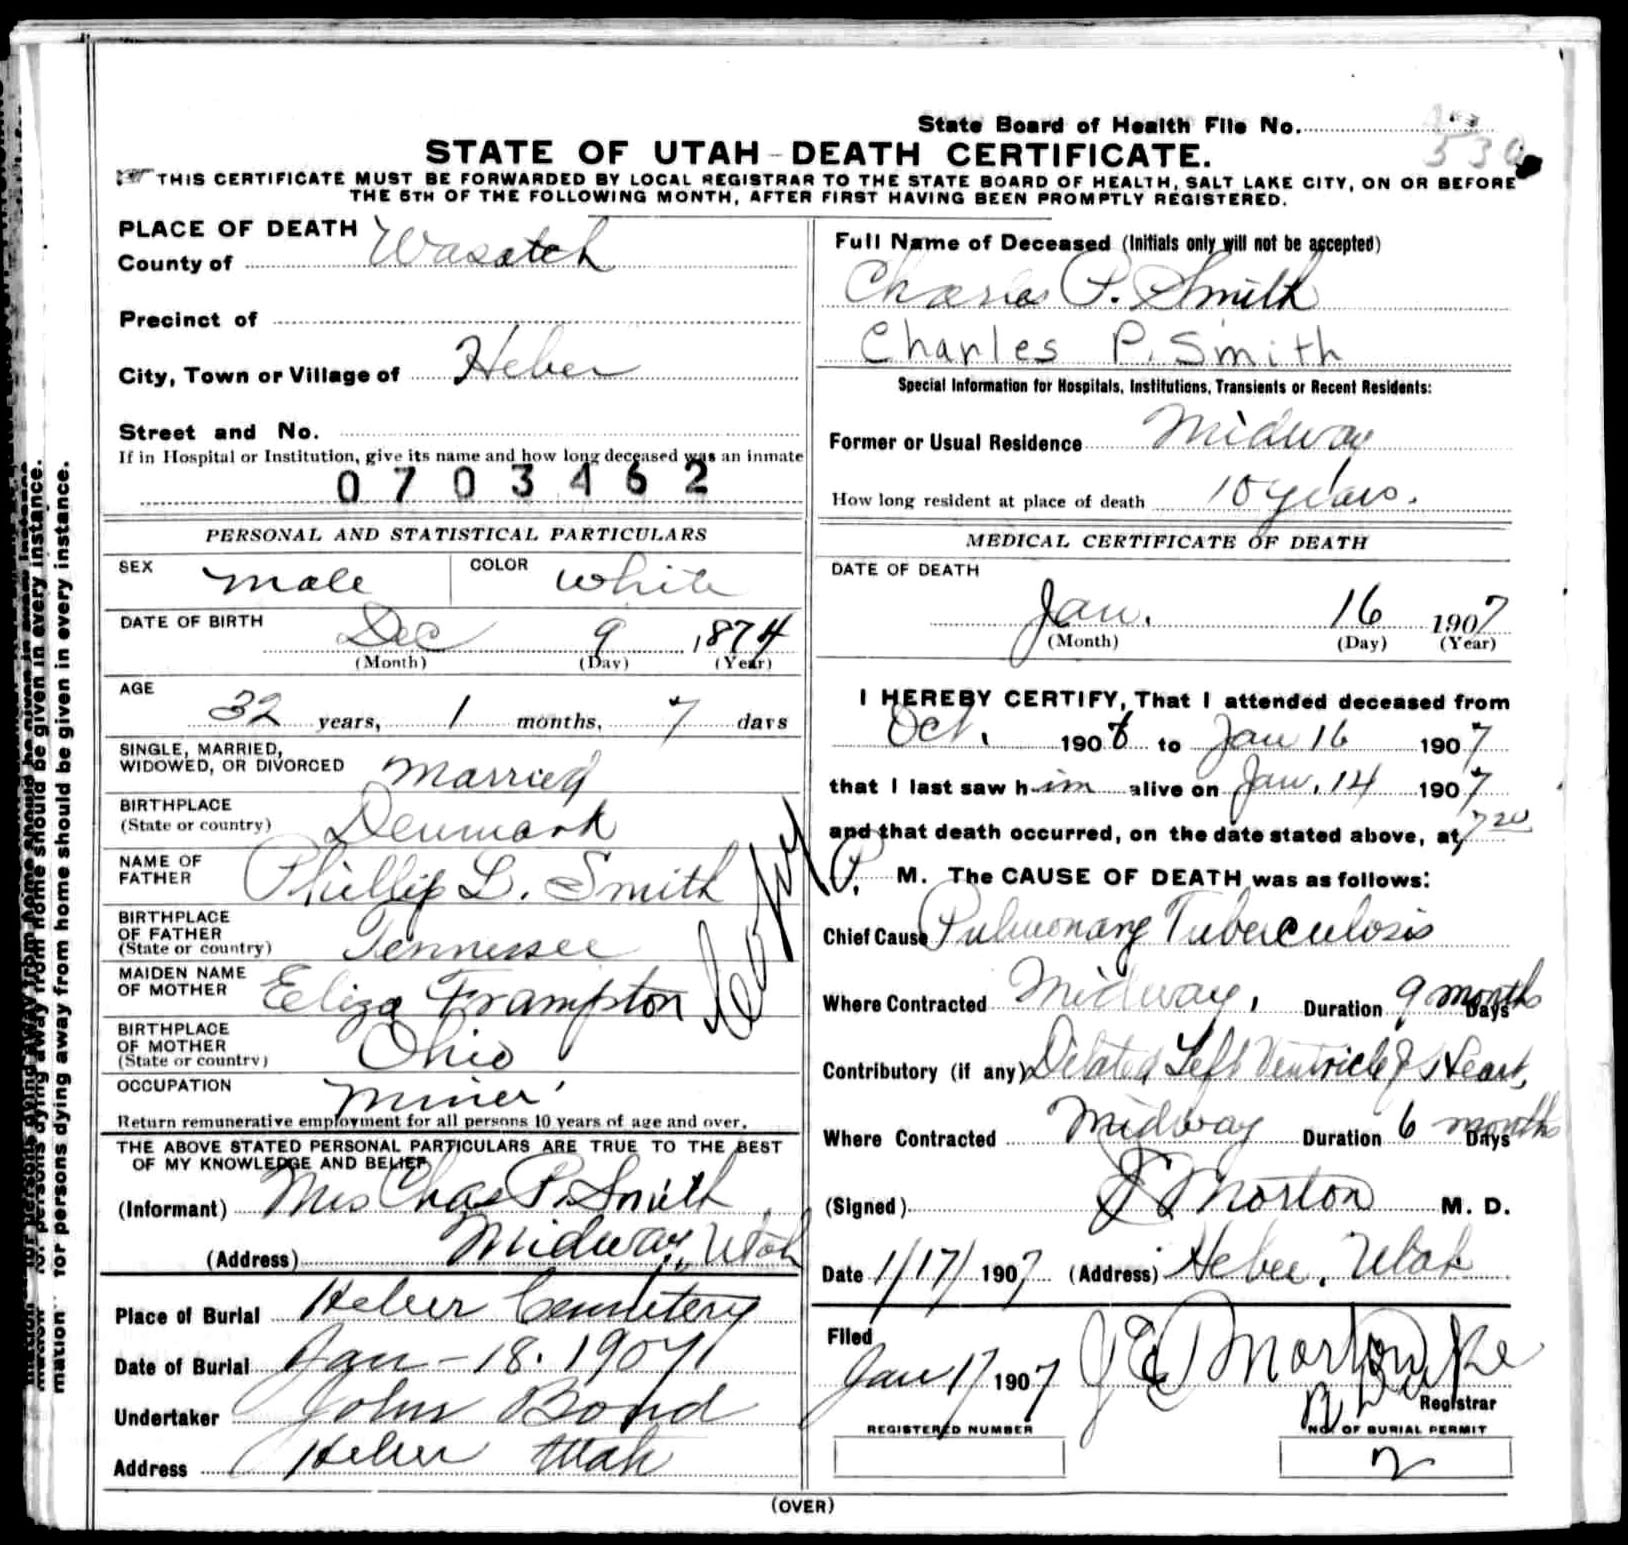 State Board of Health File No.
530
STATE OF UTAH-DEATH CERTIFICATE.
THIS CERTIFICATE MUST BE FORWARDED BY LOCAL REGISTRAR TO THE STATE BOARD OF HEALTH, SALT LAKE CITY, ON OR BEFORE
THE 5TH OF THE FOLLOWING MONTH, AFTER FIRST HAVING BEEN PROMPTLY REGISTERED.
PLACE OF DEATH
County of Wasatch
Precinct of
City, Town or Village of Heber
Street and No.
If in Hospital or Institution, give its name and how long deceased was an inmate
0703462
PERSONAL AND STATISTICAL PARTICULARS
SEX male COLOR white
DATE OF BIRTH Dec 9 1874
(Month) (Day) (Year)
AGE
32 years, 1 months, 7 days
SINGLE, MARRIED,
WIDOWED, OR DIVORCED Married
BIRTHPLACE
(State or country) Denmark
NAME OF
FATHER Phillip L. Smith
BIRTHPLACE
OF FATHER
(State or country) Tennessee
MAIDEN NAME
OF MOTHER Eliza Frampton
BIRTHPLACE
OF MOTHER
(State or country) Ohio
OCCUPATION Miner
Return remunerative employment for all persons 10 years of age and over.
Copy
THE ABOVE STATED PERSONAL PARTICULARS ARE TRUE TO THE BEST
OF MY KNOWLEDGE AND BELIEF
(Informant) Mrs Chas P. Smith
(Address) Midway, Utah
Place of Burial Heber Cemetery
Date of Burial Jan-18. 1907
Undertaker John Bond
Address Heber Utah
Full Name of Deceased (Initials only will not be accepted)
Charles P. Smith
Charles P. Smith
Special Information for Hospitals, Institutions, Transients or Recent Residents:
Former or Usual Residence Midway
How long resident at place of death 10 years.
MEDICAL CERTIFICATE OF DEATH
DATE OF DEATH
Jan. 16 1907
(Month) (Day) (Year)
I HEREBY CERTIFY, That I attended deceased from
Oct. 1906 to Jan 16 1907
that I last saw him alive on Jan. 14 1907
and that death occurred, on the date stated above, at 7 20
P. M. The CAUSE OF DEATH was as follows:
Chief Cause Pulmonary Tuberculosis
Where Contracted Midway, Duration 9 months Days
Contributory (if any) Dilated Left Ventricle of Heart,
Where Contracted Midway Duration 6 months Days
(Signed) Morton M. D.
Date 1/17/1907 (Address) Heber, Utah
Filed
Jan 17 1907 Morton
Registrar
REGISTERED NUMBER NO. OF BURIAL PERMIT
2
(OVER)
for persons dying away from home should be given in every instance.